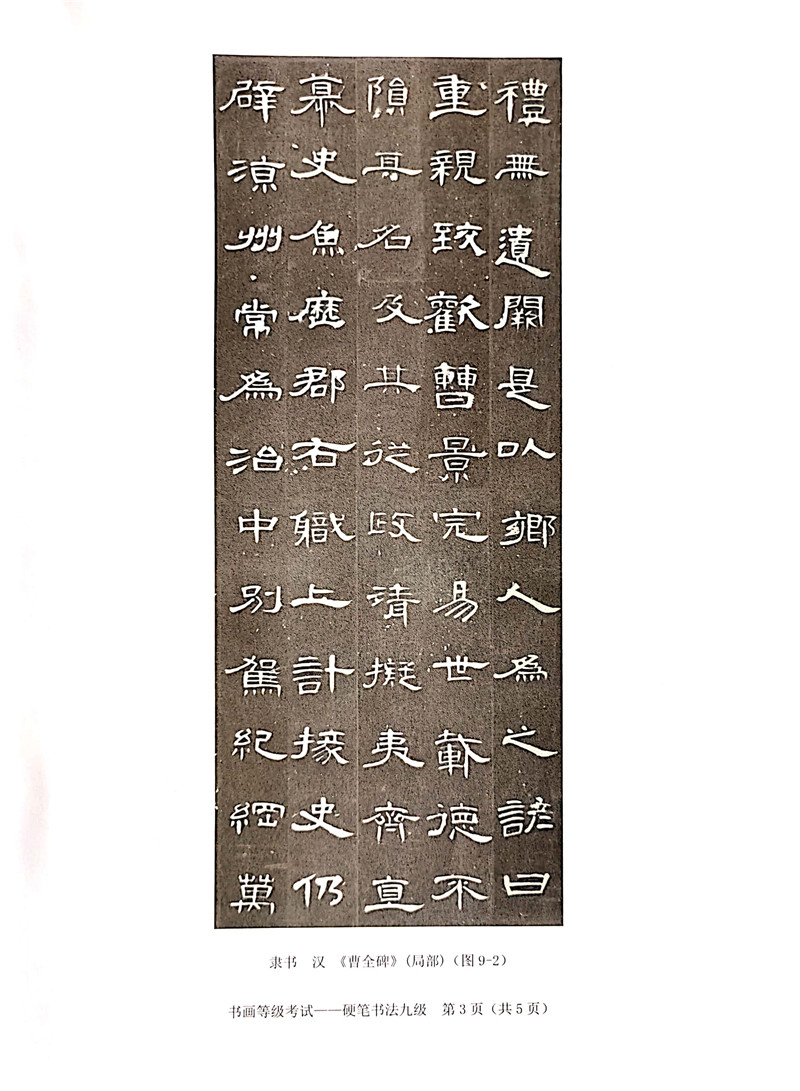 禮無遺闕是以鄉人為之諺曰
重親致歡曹景完易世載德不
隕其名及其從政清擬夷齊直
慕史魚歷郡右職上計掾史仍
辟涼州常為治中別駕紀綱萬
隶书 汉 《曹全碑》(局部)（图9-2）
书画等级考试——硬笔书法九级 第3页（共5页）